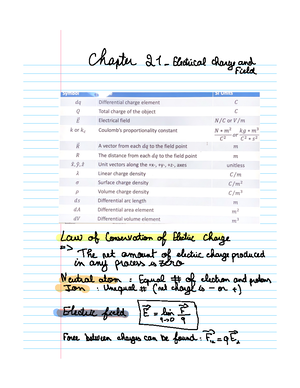 Chapter 21 - Electrical charge and Field
Symbol SI Units
dq Differential charge element C
Q Total charge of the object C
E⃗ Electrical field N/C or V/m
k or kₑ Coulomb's proportionality constant N * m² / C² or kg * m³ / C² * s²
R⃗ A vector from each dq to the field point m
R The distance from each dq to the field point m
î, ĵ, k̂ Unit vectors along the +x-, +y-, +z-, axes unitless
λ Linear charge density C/m
σ Surface charge density C/m²
ρ Volume charge density C/m³
ds Differential arc length m
dA Differential area element m²
dV Differential volume element m³
Law of Conservation of Electric Charge
=> The net amount of electric charge produced
in any process is zero
Neutral atom : Equal # of electron and proton
Ion : Unequal # (net charge is - or +)
Electric field : E⃗ = lim q→0 F⃗/q
Force between charges can be found :